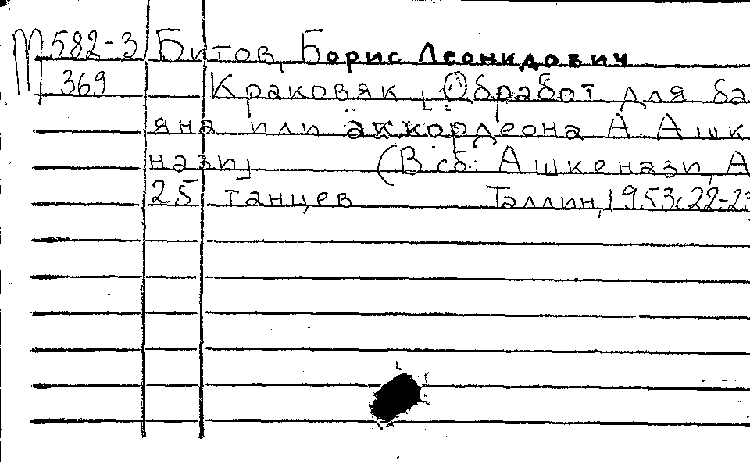 М 582-3 Битов, Борис Леонидович
369 Краковяк [Обработ для ба
яна или аккордеона А Ашк
нази] (В сб: Ашкенази, А
25 танцев Таллин, 1953, с 22-23